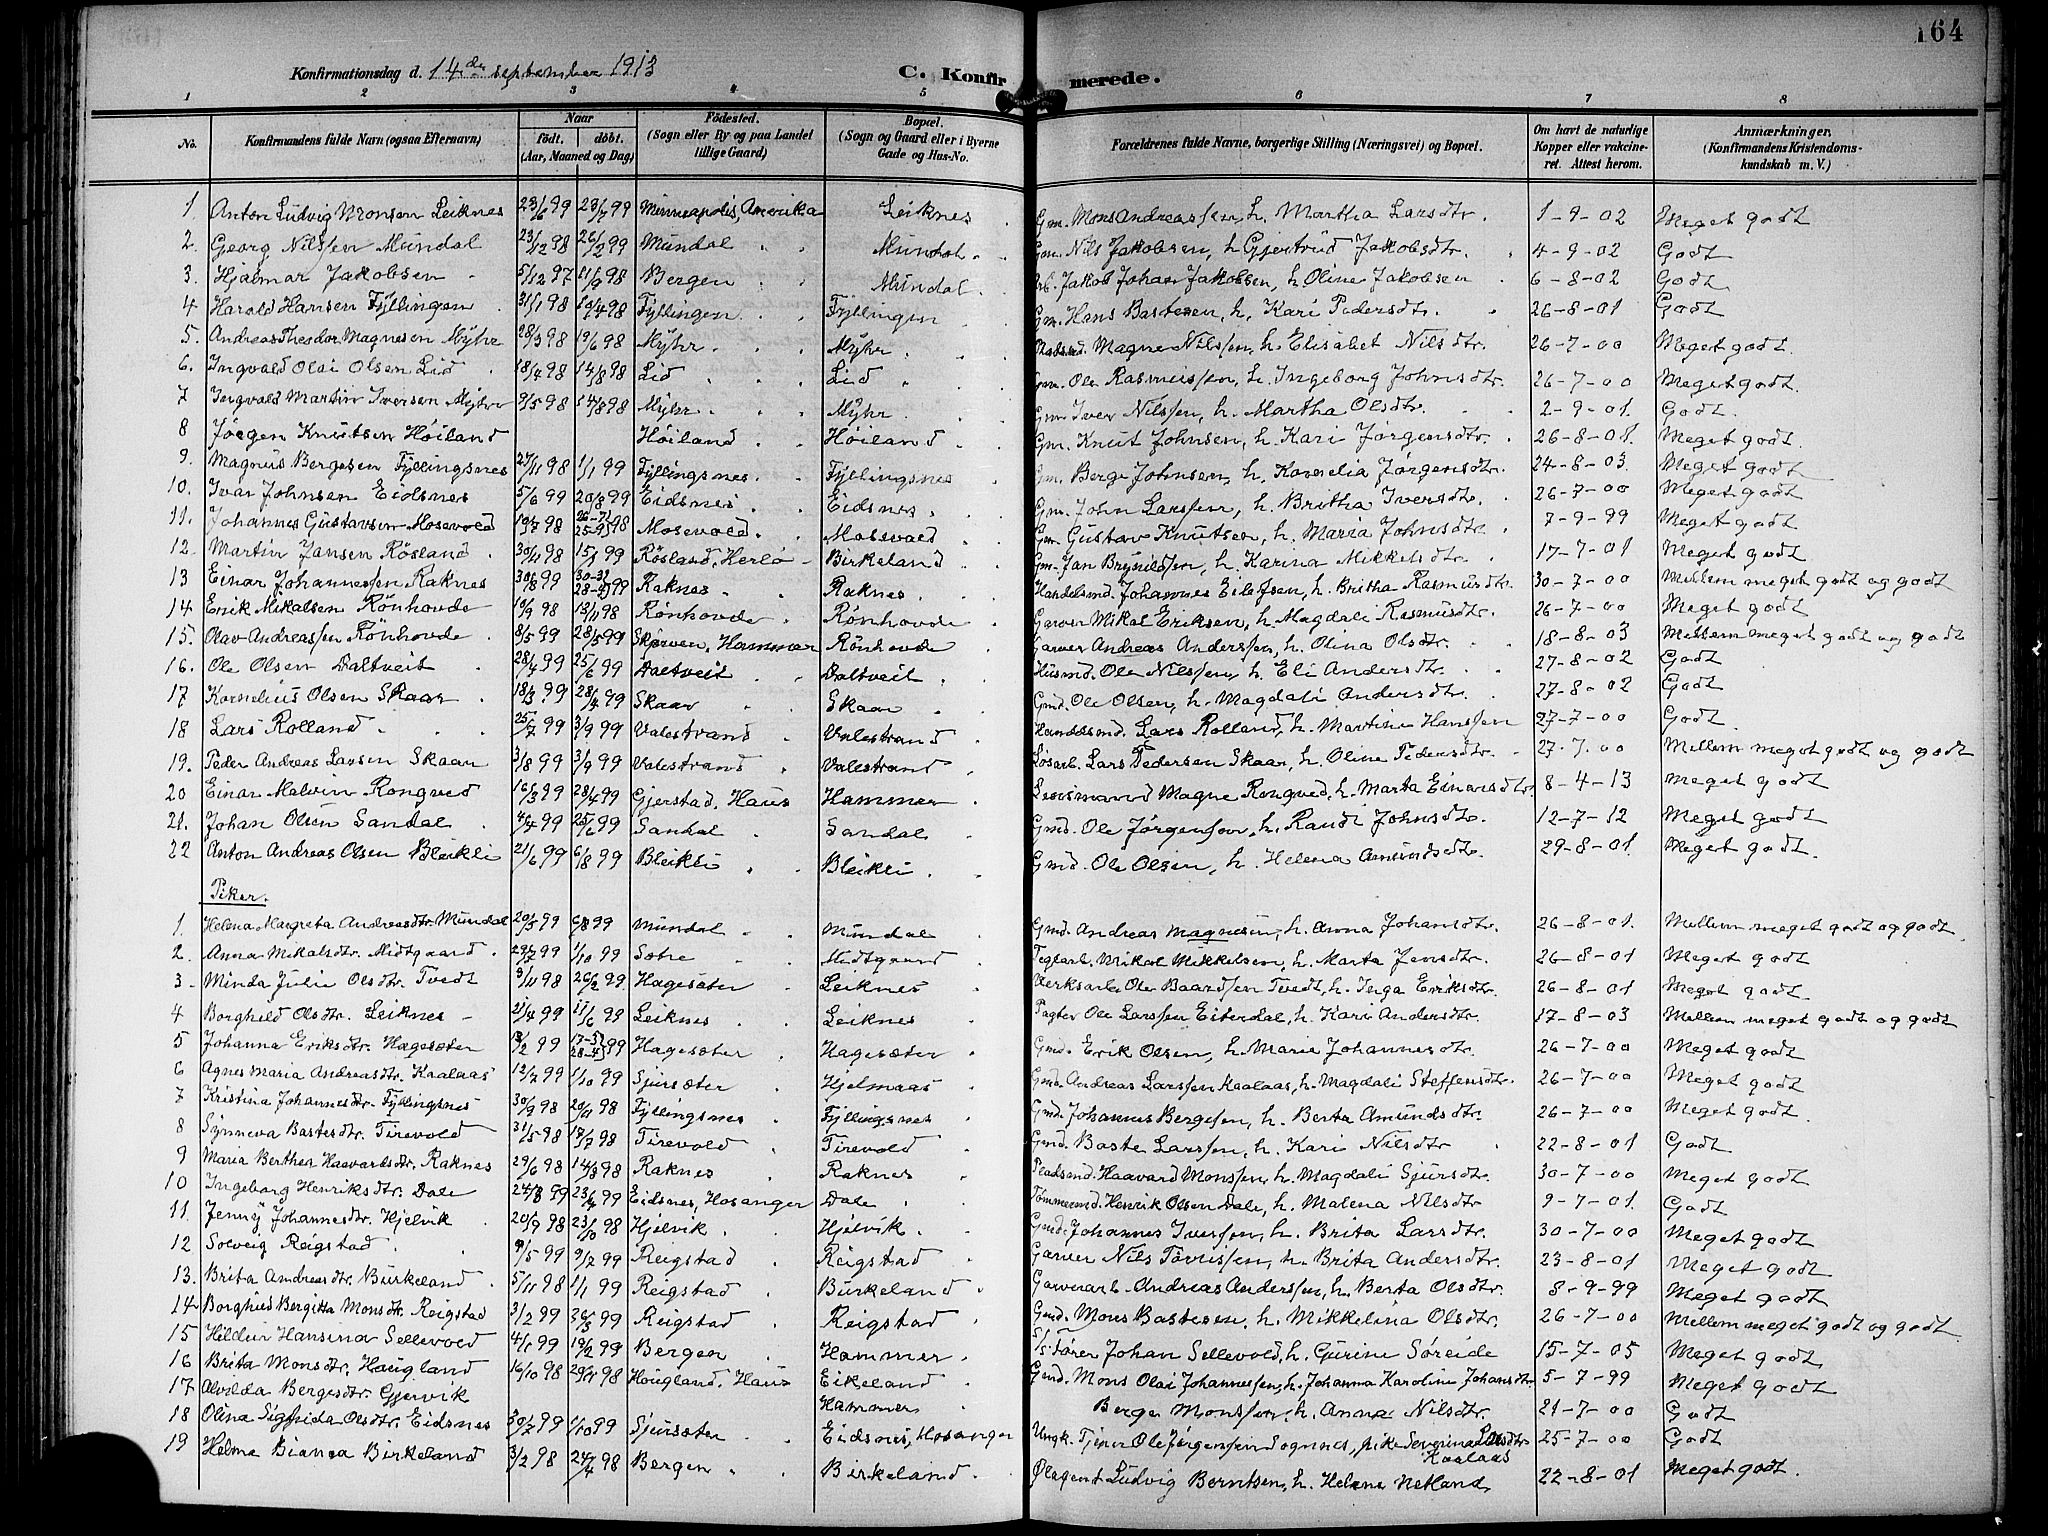 164
Konfirmationsdag d. 14de september 1913 C. Konfirmerede.
1 2 3 4 5 6 7 8
No. Konfirmandens fulde Navn (ogsaa Efternavn) Naar født. døbt. (Aar, Maaned og Dag) Fødested. (Sogn eller By og paa Landet tillige Gaard) Bopæl. (Sogn og Gaard eller i Byerne Gade og Hus-No. Forældrenes fulde Navne, borgerlige Stilling (Næringsvei) og Bopæl. Om havt de naturlige Kopper eller vakcineret. Attest herom. Anmærkninger. (Konfirmandens Kristendomskundskab m. V.)
1. Anton Ludvig Monsen Leiknes 23/6 99 23/7 99 Minneapolis, Amerika Leiknes Gm. Mons Andreassen, h. Martha Larsdtr. 1-9-02 Meget godt
2. Georg Nilssen Mundal 23/12 98 26/2 99 Mundal Mundal Gm. Nils Jakobsen, h. Gjertrud Jakobsdtr. 4-9-02 Godt
3. Hjalmar Jakobsen 5/12 97 11/9 98 Bergen Mundal Arb. Jakob Johan Jakobsen, h. Oline Jakobsen 6-8-02 Godt
4 Harald Hansen Fyllingen 31/1 98 10/4 98 Fyllingen Fyllingen Gm. Hans Bastesen, h. Kari Pedersdtr. 26-8-01 Godt
5. Andreas Theodor Magnesen Myhr 28/3 98 19/6 98 Myhr Myhr Pladsmd. Magne Nilssen, h. Elisabet Nilsdtr. 26-7-00 Meget godt.
6. Ingvald Olai Olsen Lid 18/4 98 14/8 98 Lid Lid Gm. Ole Rasmussen, h. Ingeborg Johnsdtr. 26-7-00 Meget godt.
7 Ingvald Martin Iversen Myhr 9/5 98 14/8 98 Myhr Myhr Gm. Iver Nilssen, h. Martha Olsdtr. 2-9-01. Godt.
8 Jørgen Knutsen Høiland Høiland Høiland Gm. Knut Johnsen, h. Kari Jørgensdtr. 26-8-01. Meget godt.
9. Magnus Bergesen Fyllingsnes 27/11 98 1/1 99 Fyllingsnes Fyllingsnes Gm. Berge Johnsen, h. Kornelia Jørgensdtr. 24-8-03. Meget godt
10. Ivar Johnsen Eidsnes 5/6 99 20/8 99 Eidsnes Eidsnes Gm. John Larssen, h. Britha Iversdtr. 26-7-00 Meget godt
11. Johannes Gustavsen Mosevold 19/7 98 26-7/25-9 98 Mosevold Mosevold Gm. Gustav Knutsen, h. Maria Johnsdtr. 7-9-99 Meget godt
12 Martin Jansen Røsland 30/11 98 15/1 99 Røsland, Herlø Birkeland Gm. Jan Brynildsen, h. Karina Mikkelsdtr. 17-7-01 Meget godt
13 Einar Johannessen Raknes 30/8 99 Raknes Raknes Handelsmd. Johannes Eilefsen, h. Britha Rasmusdtr. 30-7-00 Mellem meget godt og godt
14 Erik Mikalsen Rønhovde 10/9 98 13/11 98 Rønhovde Rønhovde Garver Mikal Eriksen, h. Magdali Rasmusdtr. 26-7-00 Meget godt
15. Olav Andreassen Rønhovde 8/5 99 28/5 99 Skørven, Hammer Rønhovde Garver Andreas Anderssen, h. Olina Olsdtr. 18-8-03 Mellem meget godt og godt
16. Ole Olsen Daltveit 28/4 99 25/6 99 Daltveit Daltveit Husmd. Ole Nilssen, h. Eli Andersdtr. 27-8-02 Godt
17 Kornelius Olsen Skaar 18/3 99 28/4 99 Skaar Skaar Gmd. Ole Olsen, h. Magdali Andersdtr. 27-8-02 Godt
18 Lars Rolland 25/7 99 3/9 99 Valestrand Valestrand Handelsmd. Lars Rolland, h. Martine Hanssen 27-7-00 Godt
19. Peder Andreas Larsen Skaar 3/8 99 3/9 99 Valestrand Valestrand Løsarb. Lars Pedersen Skaar, h. Oline Pedersdtr. 27-7-00 Mellem meget godt og godt
20 Einar Malvin Rongved 16/3 99 28/4 99 Gjerstad, Haus Hammer Lensmand Magne Rongved, h. Marta Einarsdtr. 8-4-13 Meget godt
21. Johan Olsen Sandal 4/4 99 25/6 99 Sandal Sandal Gmd. Ole Jørgensen, h. Randi Johnsdtr. 12-7-12 Meget godt
22 Anton Andreas Olsen Bleikli 21/6 99 6/8 99 Bleikli Bleikli Gmd. Ole Olsen, h. Helena Amundsdtr. 29-8-01. Meget godt.
Piker.
1. Helena Margreta Andreasdtr. Mundal 20/5 99 6/8 99 Mundal Mundal Gmd. Andreas Magnesen, h. Anna Johansdtr. 26-8-01. Mellem meget godt og godt
2. Anna Mikalsdtr. Midtgaard 29/7 99 1/10 99 Sætre Midtgaard Teglarb. Mikal Mikkelsen, h. Marta Jensdtr. 26-8-01 Meget godt
3 Minda Julie Olsdtr. Tvedt 3/11 98 26/2 99 Hagesæter Leiknes Verksarb. Ole Baardsen Tvedt, h. Inga Eriksdtr. 26-8-01 Meget godt
4 Borghild Olsdtr. Leiknes 21/4 99 11/6 99 Leiknes Leiknes Pagter Ole Larssen Eiterdal, h. Kari Andersdtr. 17-8-03 Mellem meget godt og godt
5 Johanna Eriksdtr. Hagesæter 8/2 99 Hagesæter Hagesæter Gmd. Erik Olsen, h. Maria Johannesdtr. 26-7-00 Meget godt
6 Agnes Maria Andreasdtr. Kaalaas 12/7 99 1/10 99 Sjursæter Hjelmaas Gmd. Andreas Larssen Kaalaas, h. Magdali Steffensdtr. 26-7-00 Meget godt
7 Kristina Johannesdtr. Fyllingsnes 30/9 98 20/11 98 Fyllingsnes Fyllingsnes Gmd. Johannes Bergesen, h. Berta Amundsdtr. 26-7-00 Meget godt
8 Synneva Bastesdtr. Tirevold 31/5 98 17/7 98 Tirevold Tirevold Gmd. Baste Larssen, h. Kari Nilsdtr 22-8-01 Godt
9 Maria Berthea Haavardsdtr. Raknes 29/6 98 14/8 98 Raknes Raknes Pladsmd. Haavard Monssen, h. Magdali Sjursdtr. 30-7-00 Meget godt
10 Ingeborg Henriksdtr. Dale 24/3 99 23/4 99 Eidsnes, Hosanger Dale Tømmermd. Henrik Olsen Dale, h. Malena Nilsdtr 9-7-01. Godt
11. Jenny Johannesdtr. Hjelvik 20/9 98 23/10 98 Hjelvik Hjelvik Gmd. Johannes Iversen, h. Brita Larsdtr. 30-7-00 Meget godt
12 Solveig Reigstad 9/5 99 9/7 99 Reigstad Reigstad Garver Nils Tørrissen, h. Brita Andersdtr. 23-8-01 Meget godt
13. Brita Andreasdtr. Burkeland 5/11 98 1/1 99 Reigstad Burkeland Garverarb. Andreas Anderssen, h. Berta Olsdtr. 8-9-99 Meget godt
14 Borghild Bergitta Monsdtr. Reigstad 3/2 99 26/3 99 Reigstad Reigstad Gmd. Mons Bastesen, h. Mikkelina Olsdtr. 26-7-00 Mellem meget godt og godt
15 Hildur Hansina Sellevold 4/1 99 19/2 99 Bergen Hammer S/s fører Johan Sellevold, h. Gurine Søreide 15-7-05 Meget godt
16 Brita Monsdtr. Haugland 16/10 98 20/11 98 Hougland, Haus Eikeland Gmd. Mons Olai Johannessen, h. Johanna Karoline Johansdtr. 5-7-99 Meget godt
17 Alvilda Bergesdtr. Gjervik Hammer Berge Monssen, h. Anna Nilsdtr. 21-7-00 Godt
18 Olina Sigfrida Olsdtr. Eidsnes 30/7 99 1/10 99 Sjursæter Eidsnes, Hosanger Ungk. Tjener Ole Jørgensen Sognnes, pike Severina Larsdtr Kaalaas 25-7-00 Godt
19 Helma Bianca Birkeland 3/2 98 24/4 98 Bergen Birkeland Ølagent Ludvig Berntsen, h. Helena Netland 22-8-01 Meget godt.